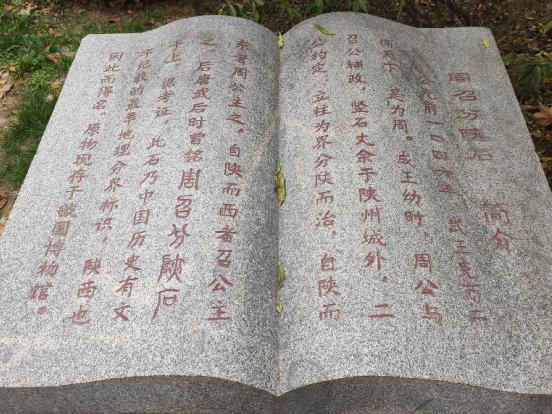 周召分陕石 简介
公元前一〇四六年 武王克商而
有天下，是为周。成王幼时，周公与
召公辅政，竖石丈余于陕州城外，二
公约定，立柱为界分陕而治，自陕而
东者周公主之，自陕而西者召公主
之。后唐武后时曾铭周召分陕石
于上，据考证，此石乃中国历史有文
字记载的最早地理分界标识，陕西也
因此而得名，原物现存于虢国博物馆。